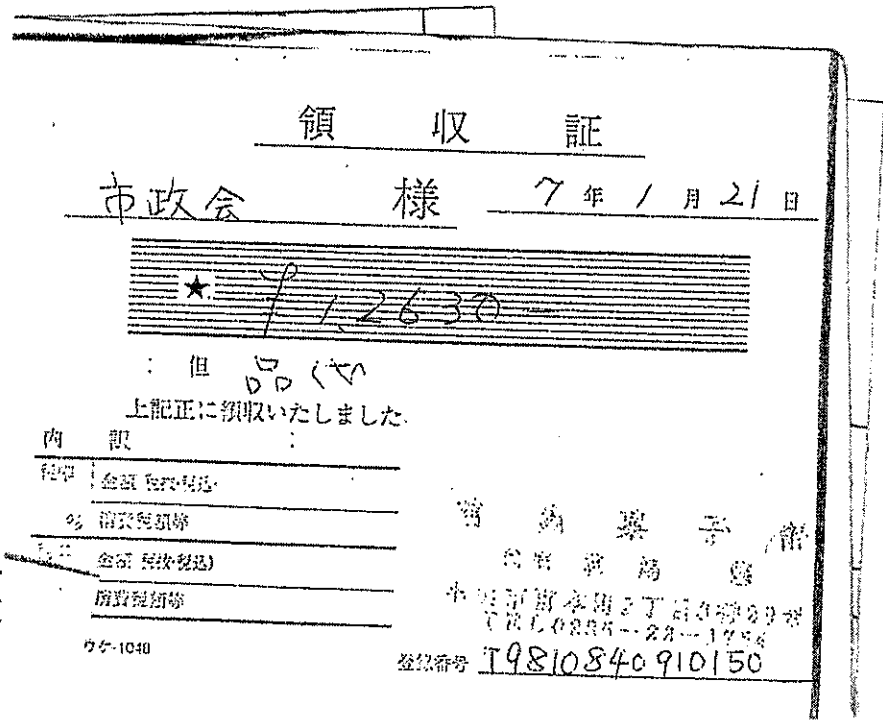 領 収 証
市政会 様 7年1月21日
★ ¥1,2630
但 品代
上記正に領収いたしました
内 訳
金額 税抜・税込
% 消費税額等
金額 税抜・税込)
消費税額等
菓子
ウケ-1048
登録番号 T9810840910150